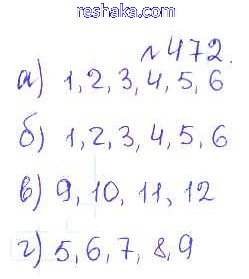 reshaka.com
№472.
а) 1, 2, 3, 4, 5, 6
б) 1, 2, 3, 4, 5, 6
в) 9, 10, 11, 12
г) 5, 6, 7, 8, 9